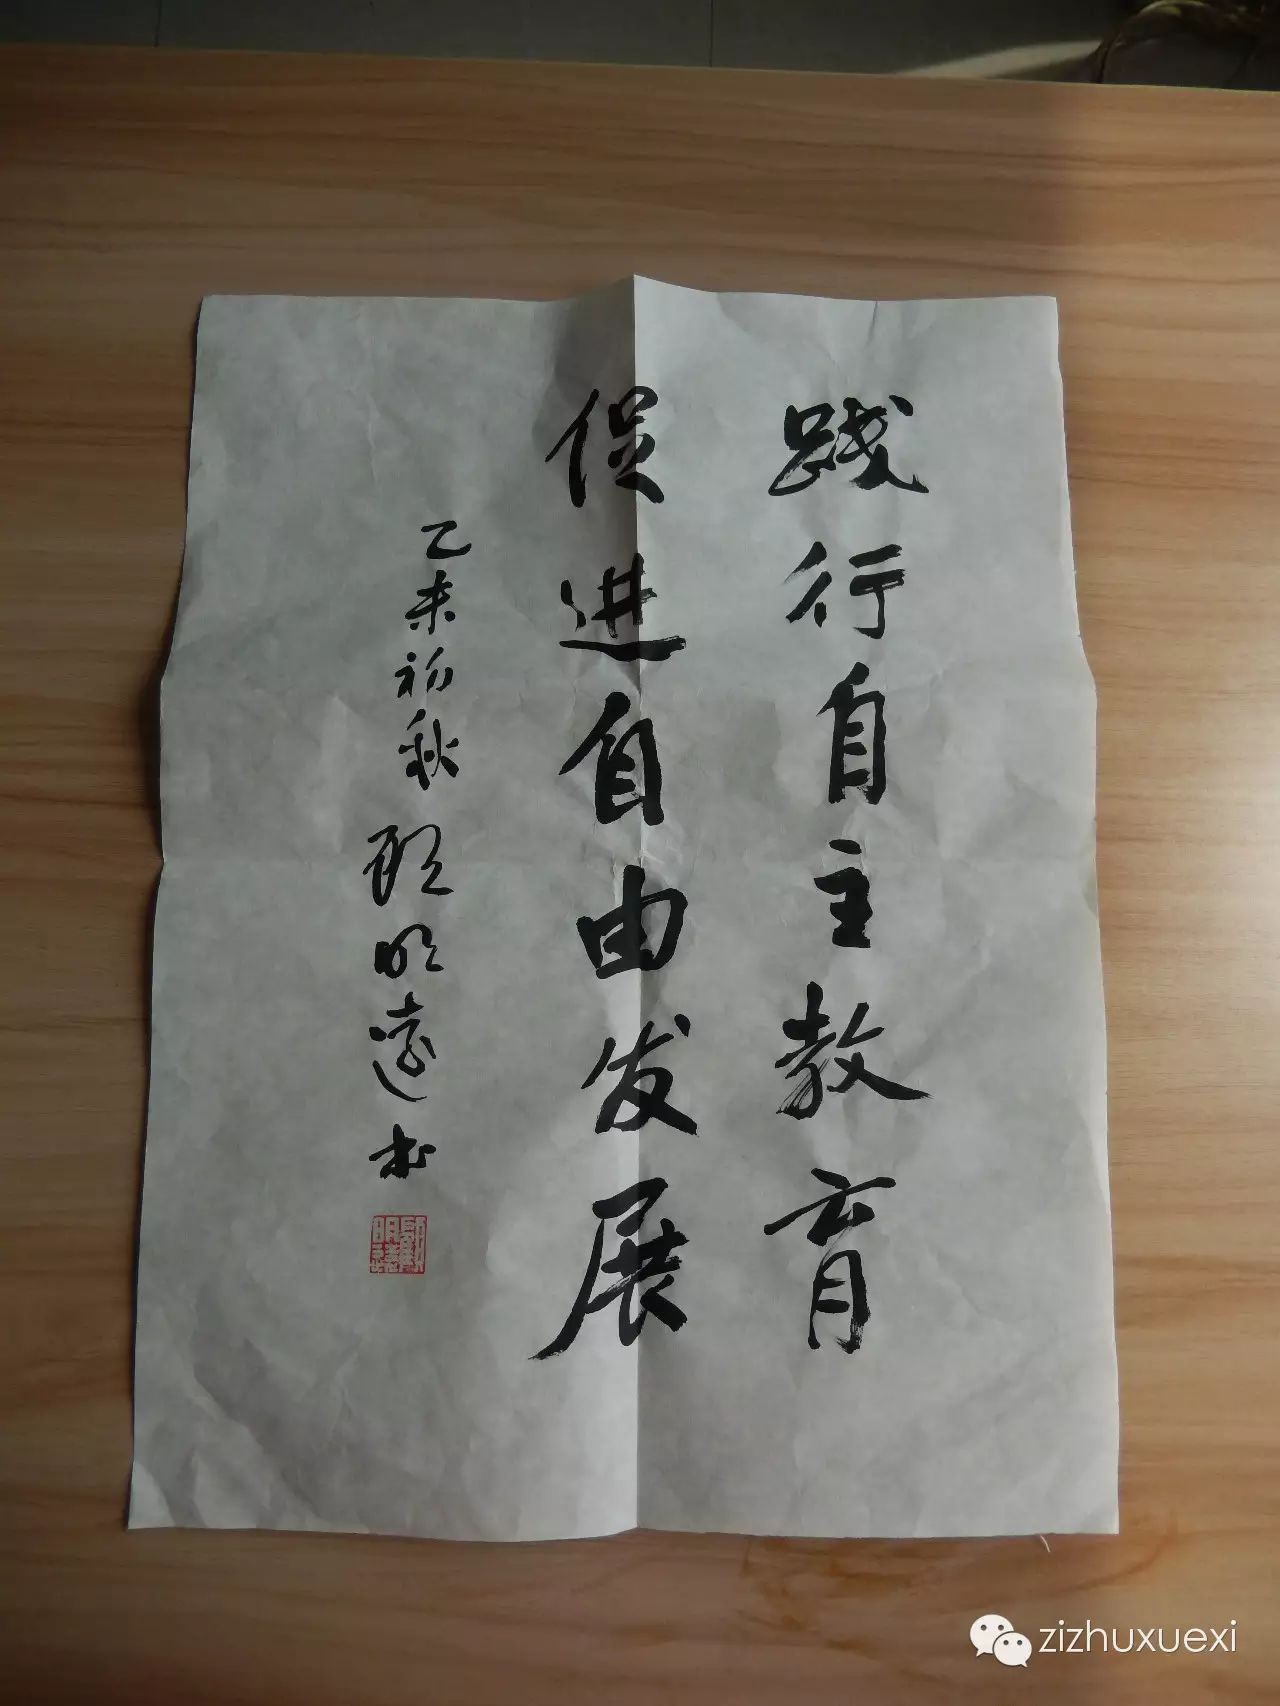 践行自主教育
促进自由发展
乙未初秋 顾明远书
顾明远
zizhuxuexi